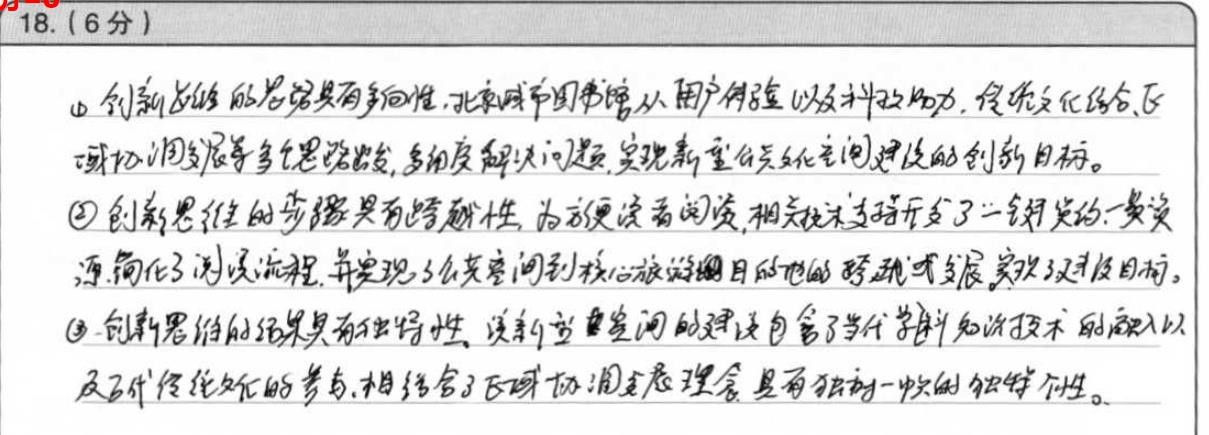 18.（6分）
① 创新思维的思路具有多向性，北京城市图书馆从用户体验以及科技助力，传统文化结合、区
域协调发展等多个思路出发，多角度解决问题，实现新型公共文化空间建设的创新目标。
② 创新思维的步骤具有跨越性，为方便读者阅读，相关技术支持开发了一键预约、一类资
源，简化了阅读流程，并实现了公共空间到核心旅游目的地的跨越式发展，实现了建设目标。
③ 创新思维的结果具有独特性。该新型空间的建设包含了当代学科知识技术的融入以
及古代传统文化的参与，相结合了区域协调发展理念，具有独树一帜的独特个性。